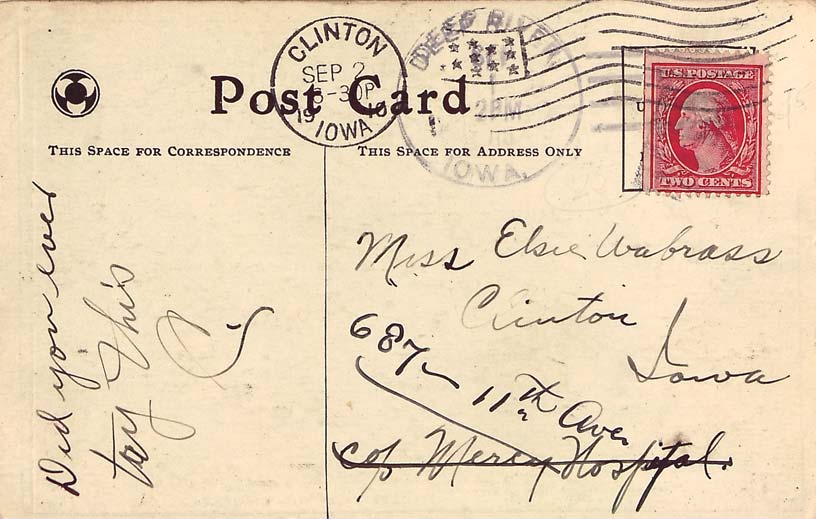 CLINTON
SEP 2
6-30P
19 10
IOWA
DEEP RIVER
2PM
IOWA.
U.S. POSTAGE
TWO CENTS
Post Card
THIS SPACE FOR CORRESPONDENCE
THIS SPACE FOR ADDRESS ONLY
Did you ever
tay this
Miss Elsie Wabrass
Clinton
Iowa
687-11th Ave
c/o Mercy Hospital.